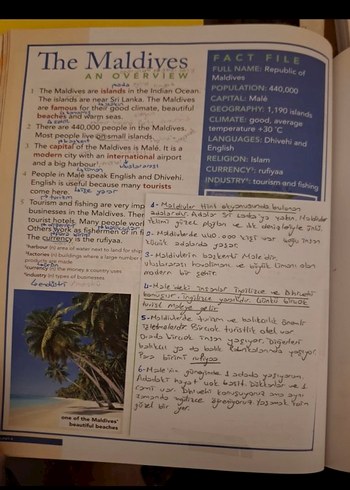 The Maldives
AN OVERVIEW
1 The Maldives are islands in the Indian Ocean.
The islands are near Sri Lanka. The Maldives
are famous for their good climate, beautiful
beaches and warm seas.
2 There are 440,000 people in the Maldives.
Most people live on small islands.
3 The capital of the Maldives is Malé. It is a
modern city with an international airport
and a big harbour
4 People in Male speak English and Dhivehi.
English is useful because many tourists
come here.
5 Tourism and fishing are very imp
businesses in the Maldives. There
tourist hotels. Many people wor
Others work as fishermen or in f
The currency is the rufiyaa.
harbour (n) area of water next to land for ship
factories (n) buildings where a large number
products are made
currency (n) the money a country uses
industry (n) types of businesses
one of the Maldives'
beautiful beaches
FACT FILE
FULL NAME: Republic of
Maldives
POPULATION: 440,000
CAPITAL: Malé
GEOGRAPHY: 1,190 islands
CLIMATE: good, average
temperature +30 °C
LANGUAGES: Dhivehi and
English
RELIGION: Islam
CURRENCY: rufiyaa
INDUSTRY: tourism and fishing
1- Maldivler Hint okyanusunda bulunan
adalardır. Adalar Sri Lanka'ya yakın. Maldivler
iklimi güzel plajları ve denizleriyle ünlü.
2. Maldivlerde 440.000 kişi var çoğu insan
küçük adalarda yaşar.
3- Maldivlerin başkenti Male'dir.
uluslararası havalimanı ve büyük limanı olan
modern bir şehir.
4- Male'deki insanlar İngilizce ve Dhivehi
konuşur. İngilizce yararlı. Çünkü birçok
turist Maleye gelir.
5- Maldivlerde turizm ve balıkçılık önemli
işletmelerdir. Birçok turistlik otel var.
Orada birçok insan yaşıyor. Diğerleri
balıkçı ya da balık fabrikalarında yaşıyor.
Para birimi rufiyaa
6- Male'nin güneyinde adada yaşıyorum.
Adadaki hayat çok
cami var. Dhivehi konuşuyoruz ama aynı
zamanda ingilizce öğreniyoruz. Yaşamak için
güzel bir yer.